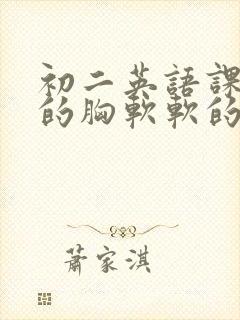 初二英語課
的胸軟軟的
蕭家淇